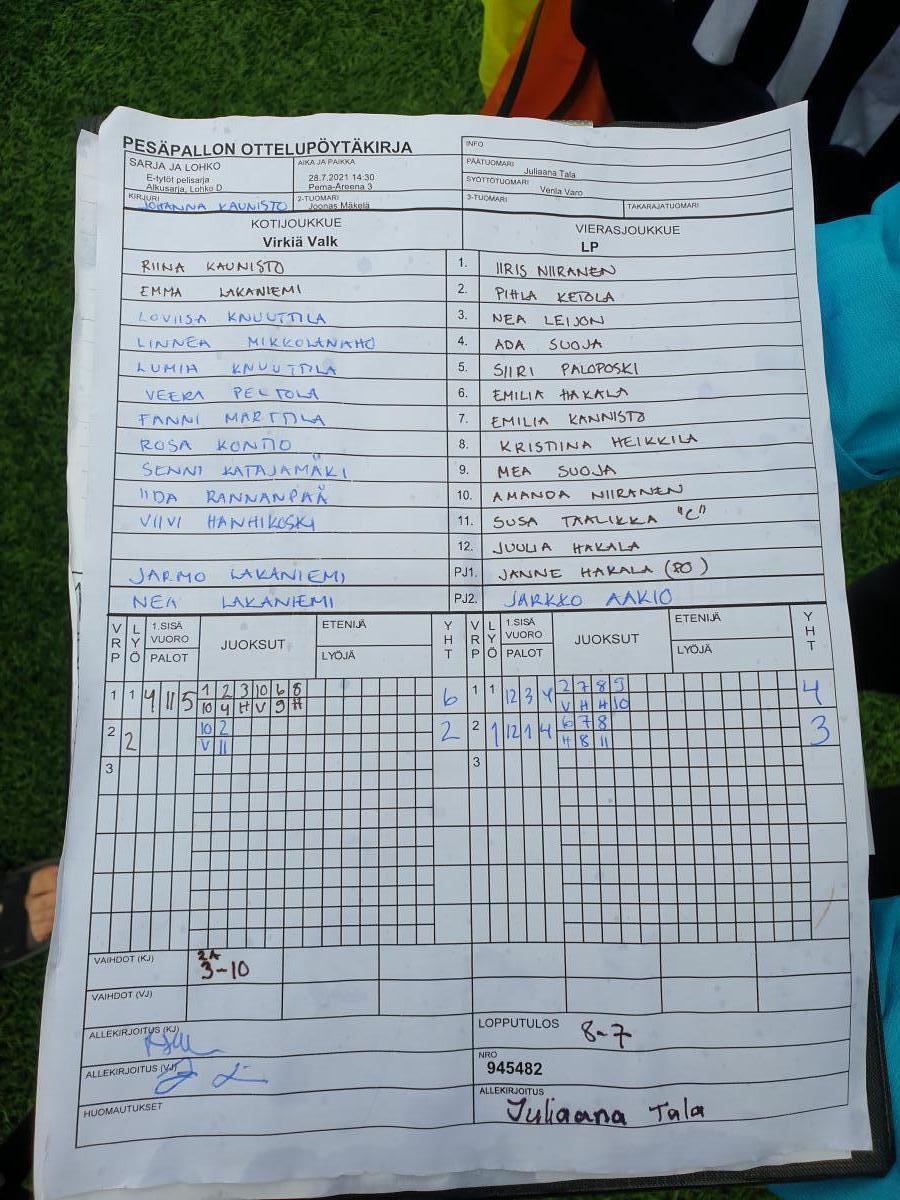 PESÄPALLON OTTELUPÖYTÄKIRJA
INFO
SARJA JA LOHKO
E-tytöt pelisarja
Alkusarja, Lohko D
AIKA JA PAIKKA
28.7.2021 14:30
Pema-Areena 3
PÄÄTUOMARI
Juliaana Tala
SYÖTTÖTUOMARI
Venla Varo
KIRJURI
JOHANNA KAUNISTO
2-TUOMARI
Joonas Mäkelä
3-TUOMARI
TAKARAJATUOMARI
KOTIJOUKKUE
Virkiä Valk
VIERASJOUKKUE
LP
RIINA KAUNISTO 1. IIRIS NIIRANEN
EMMA LAKANIEMI 2. PIHLA KETOLA
LOVIISA KNUUTTILA 3. NEA LEIJON
LINNEA MIKKOLANAHO 4. ADA SUOJA
LUMIA KNUUTTILA 5. SIIRI PALOPOSKI
VEERA PELTOLA 6. EMILIA HAKALA
FANNI MARTTILA 7. EMILIA KANNISTO
ROSA KONTIO 8. KRISTIINA HEIKKILA
SENNI KATAJAMÄKI 9. MEA SUOJA
IIDA RANNANPÄÄ 10. AMANDA NIIRANEN
VIIVI HANHIKOSKI 11. SUSA TAALIKKA "C"
12. JUULIA HAKALA
JARMO LAKANIEMI PJ1. JANNE HAKALA (PO)
NEA LAKANIEMI PJ2. JARKKO AAKIO
VRP LYÖ 1.SISÄ VUORO PALOT JUOKSUT ETENIJÄ LYÖJÄ YHT VRP LYÖ 1.SISÄ VUORO PALOT JUOKSUT ETENIJÄ LYÖJÄ YHT
1 1 4 11 5 1 2 3 10 6 8 6 1 1 12 3 4 2 7 8 9 4
10 4 H V 9 H V H H 10
2 2 10 2 2 2 1 12 1 4 6 7 8 3
V 11 H 8 11
3 3
VAIHDOT (KJ) 2A
3-10
VAIHDOT (VJ)
ALLEKIRJOITUS (KJ)
LOPPUTULOS 8-7
ALLEKIRJOITUS (VJ)
NRO
945482
HUOMAUTUKSET
ALLEKIRJOITUS
Juliaana Tala